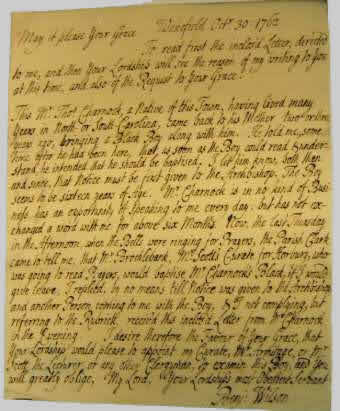 May it please Your Grace Wakefield Octr 30 1762
To read first the inclos'd Letter, directed
to me, and then Your Lordship will see the reason of my writing to You
at this time, and also of the Request to Your Grace.
This Mr Thos Charnock, a Native of this Town, having lived many
Years in North or South Carolina, came back to his Mother two or three
years ago, bringing a Black Boy along with him. He told me, some
time after he had been here, that, as soon as the Boy could read & under=
stand, he intended that he should be baptised. I let him know, both then
and since, that Notice must be first given to the Archbishop. The Boy
seems to be sixteen years of Age. Mr Charnock is in no kind of Busi
ness, has an opportunity of speaking to me every day, but has not ex=
changed a word with me for above six Months. Now, the last Tuesday
in the Afternoon, when the Bells were ringing for Prayers, the Parish Clark
came to tell me, that Mr , Mr Scott's Curate for , who
was going to read Prayers, would baptise Mr Charnock's Black, if I would
give leave. I replied, by no means till Notice was given to the Archbishop
and another Person, coming to me with the Boy, & I not complying, but
referring to the Rubrick, receiv'd this inclos'd Letter from Mr Charnock
in the Evening I desire therefore the Favour of Your Grace, that
Your Lordship would please to appoint my Curate, Mr , or Mr
Scott the Lecturer, or any other Clergyman, to examin this Boy, and you
will greatly oblige, My Lord, Your Lordship's most Obedient Servant
Benjn Wilson